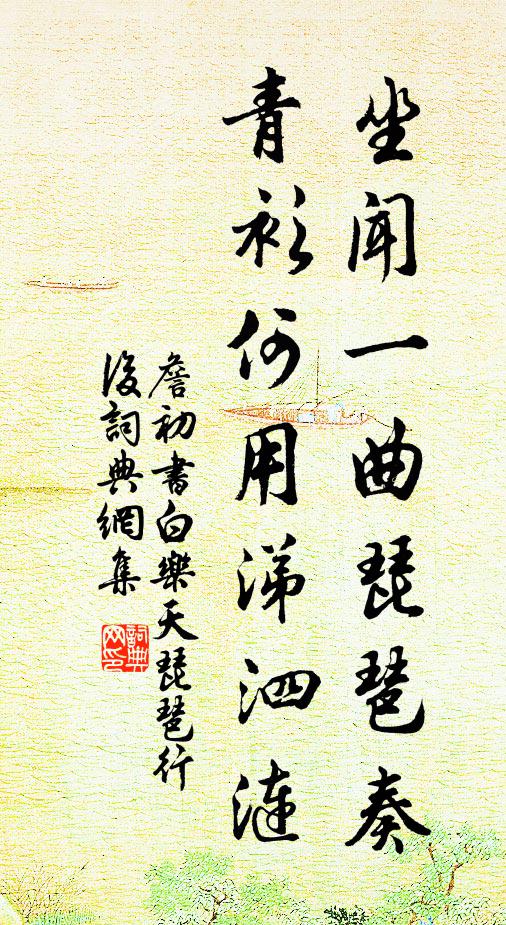 坐聞一曲琵琶奏
青衫何用涕泗漣
詹初書白樂天琵琶行
後詞典網集
詞典網印